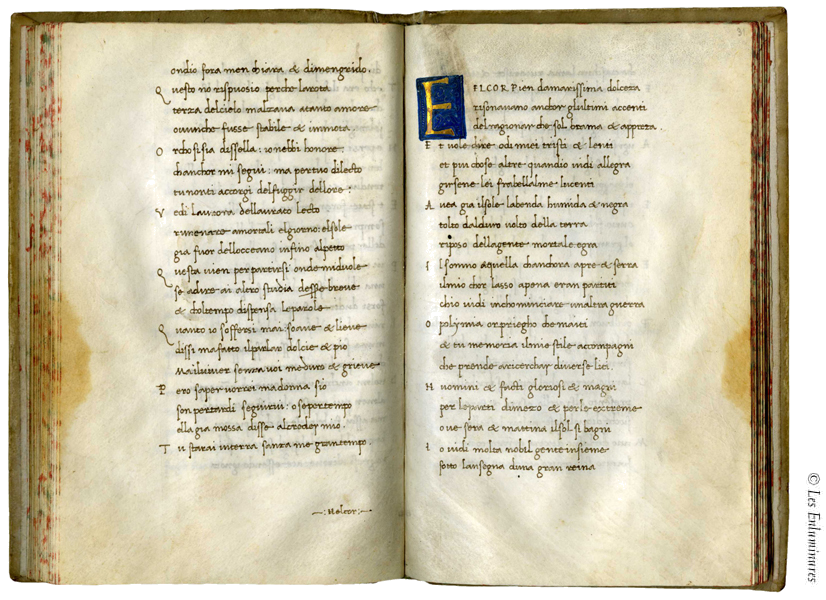 ondio fora men chiara & dimengrido.
Questo no rispuosio perche larota
terza delcielo malzaua atanto amore
ouunche fusse stabile & inmota
Orchosista dissella: io nebbi honore
chanchor mi segui: ma pertuo dilecto
tu nonti accorgi delfuggir dellore:
Vedi laurora dellaurato lecto
rimenarce amortali elgiorno: elsole
gia fuor dellocceano infino alpetto
Questa uien per partirsi onde miduole
se adire ai altro studia desse breue
& choltempo dispensa leparole
Quanto io soffersi mai: soaue & lieue
dissi mafatto ilparlar dolcie & pio
Mailuiuer senza uoi me duro & grieue
Pero saper uorrei madonna sio
son pertardi seguirui: o seportempo
ella gia mossa disse alcredor mio.
Tu starai interra sanza me gran tempo.
—:Nelcor:—
E EL COR Pien damarissima dolceza
risonauano anchor gliultimi accenti
delragionar che sol brama & appreza.
Et uole dire odi miei tristi & lenti
et piu chose altre quandio uidi allegra
girsene lei frabellalme lucenti
Auea gia ilsole labenda humida & negra
tolto dalduro uolto della terra
riposo dellagente mortale egra
Il sonno & quella chanchora apre & serra
ilmio chor lasso apena eran partiti
chio uidi inchominciare unaltra guerra
O polymia or priegho che maiti
& tu memoria ilmie stile accompagni
che prende aricerchar diuerse liti.
Huomini & facti gloriosi & magni
per leparti dimezo & per le extreme
oue sera & mattina ilsol si bagni
Io uidi molta nobil gente insieme
sotto lansegna duna gran reina
© Les Enluminures